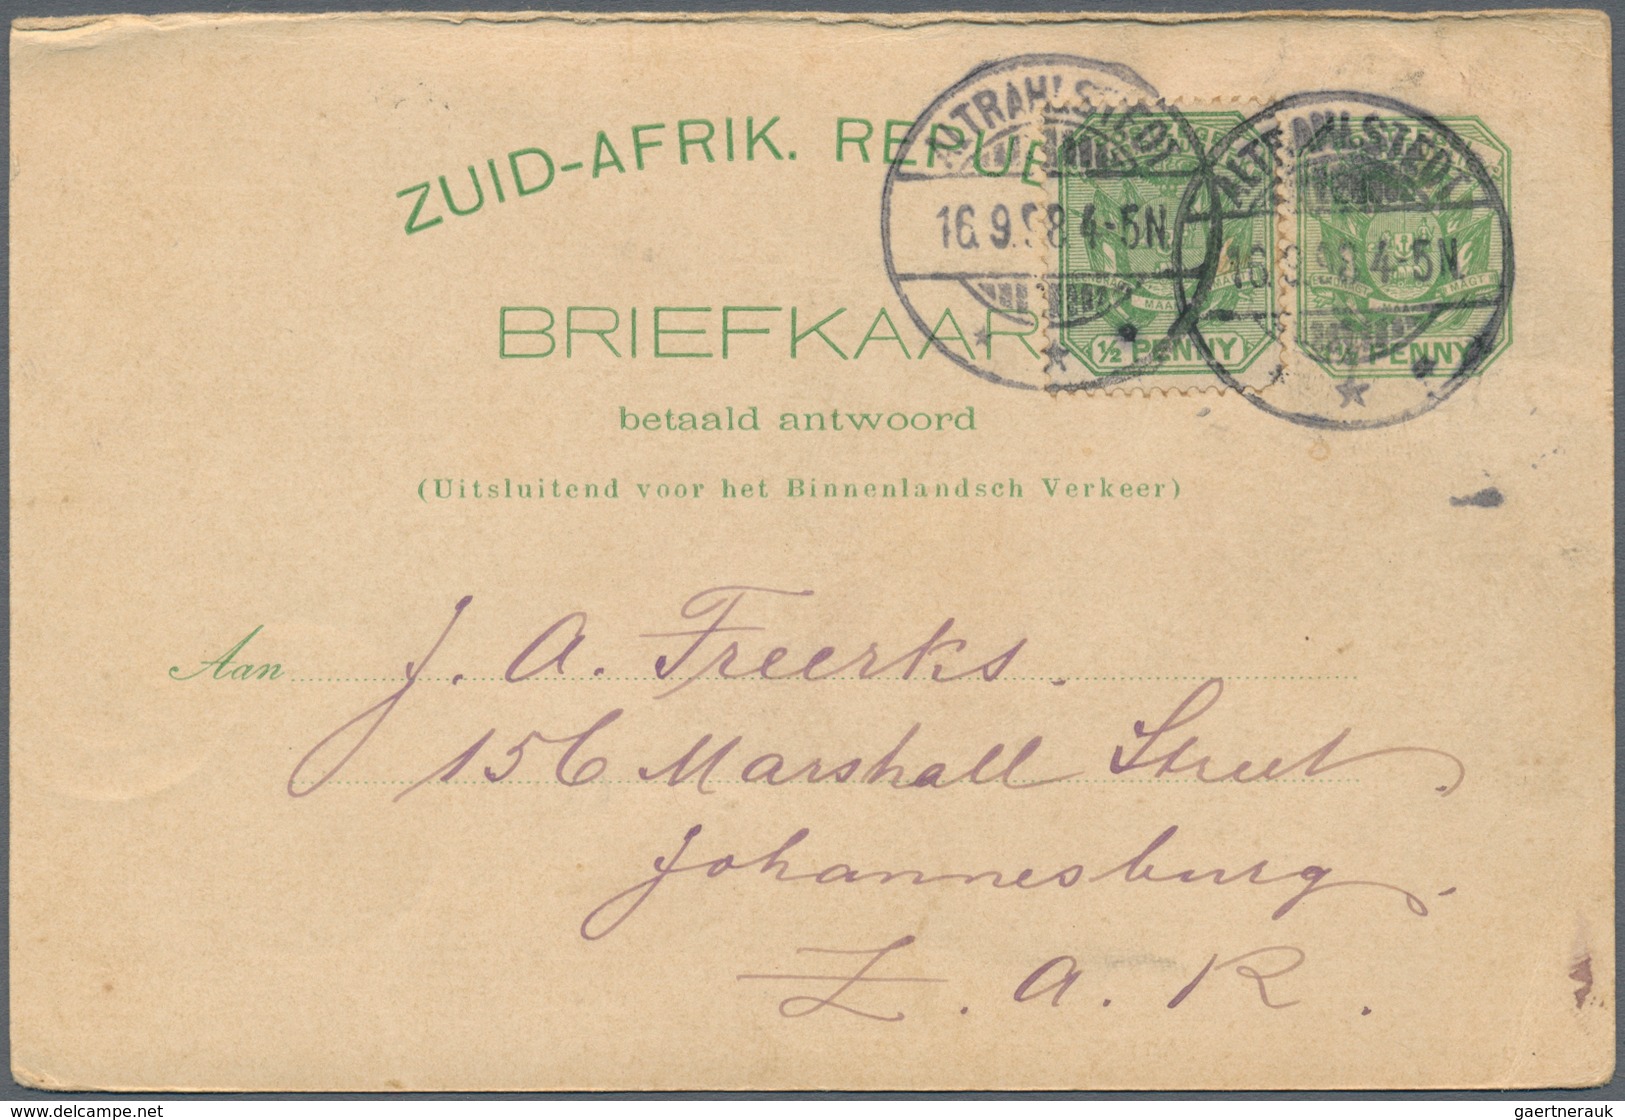 ZUID-AFRIK. REPUB
BRIEFKAAR
betaald antwoord
(Uitsluitend voor het Binnenlandsch Verkeer)
ALTRAHLSTEDT
16.9.98 4-5N
½ PENNY
ALTRAHLSTEDT
16.9.98 4-5N
MAGT
½ PENNY
Aan J. A. Freerks.
156 Marshall Street.
Johannesburg.
Z. A. R.
www.delcampe.net
gaertnerauk